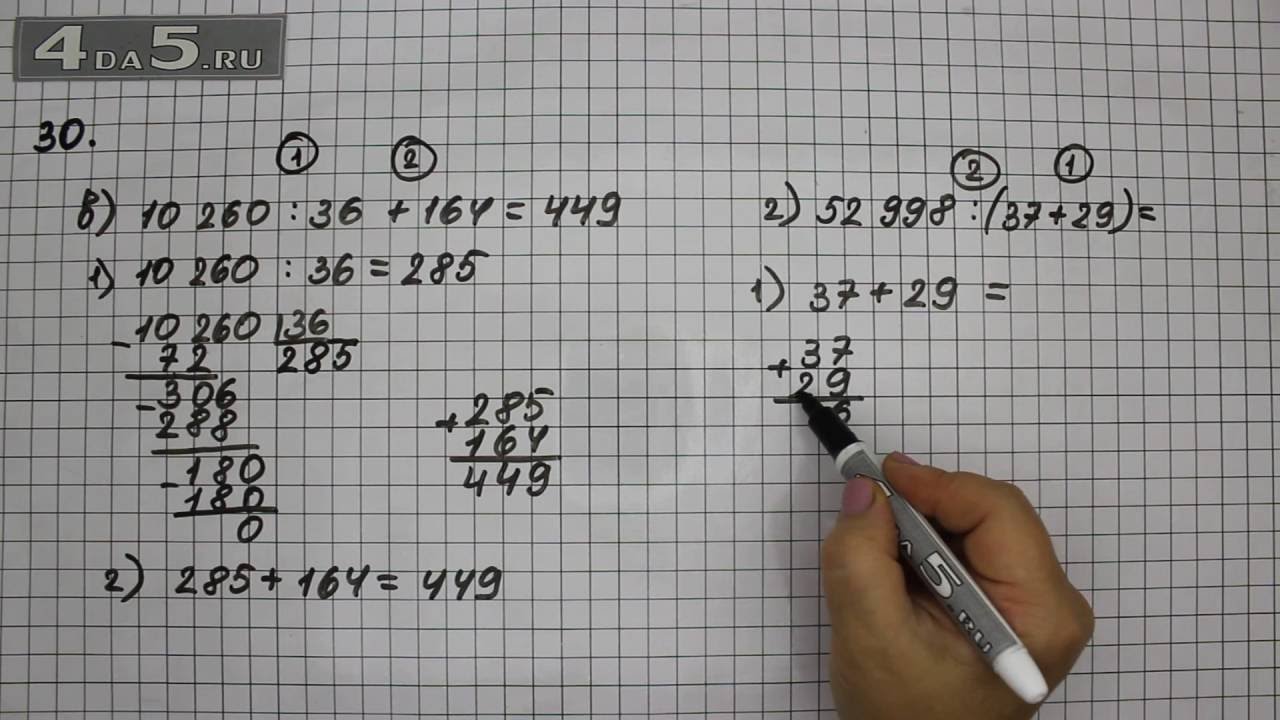 4DA5.RU
30.
1 2
в) 10 260 : 36 + 164 = 449
1) 10 260 : 36 = 285
- 10 260 36
72 285
- 306
288
- 180
180
0
+ 285
164
449
2) 285 + 164 = 449
2 1
г) 52 998 : (37 + 29) =
1) 37 + 29 =
+ 37
29
6
5.RU